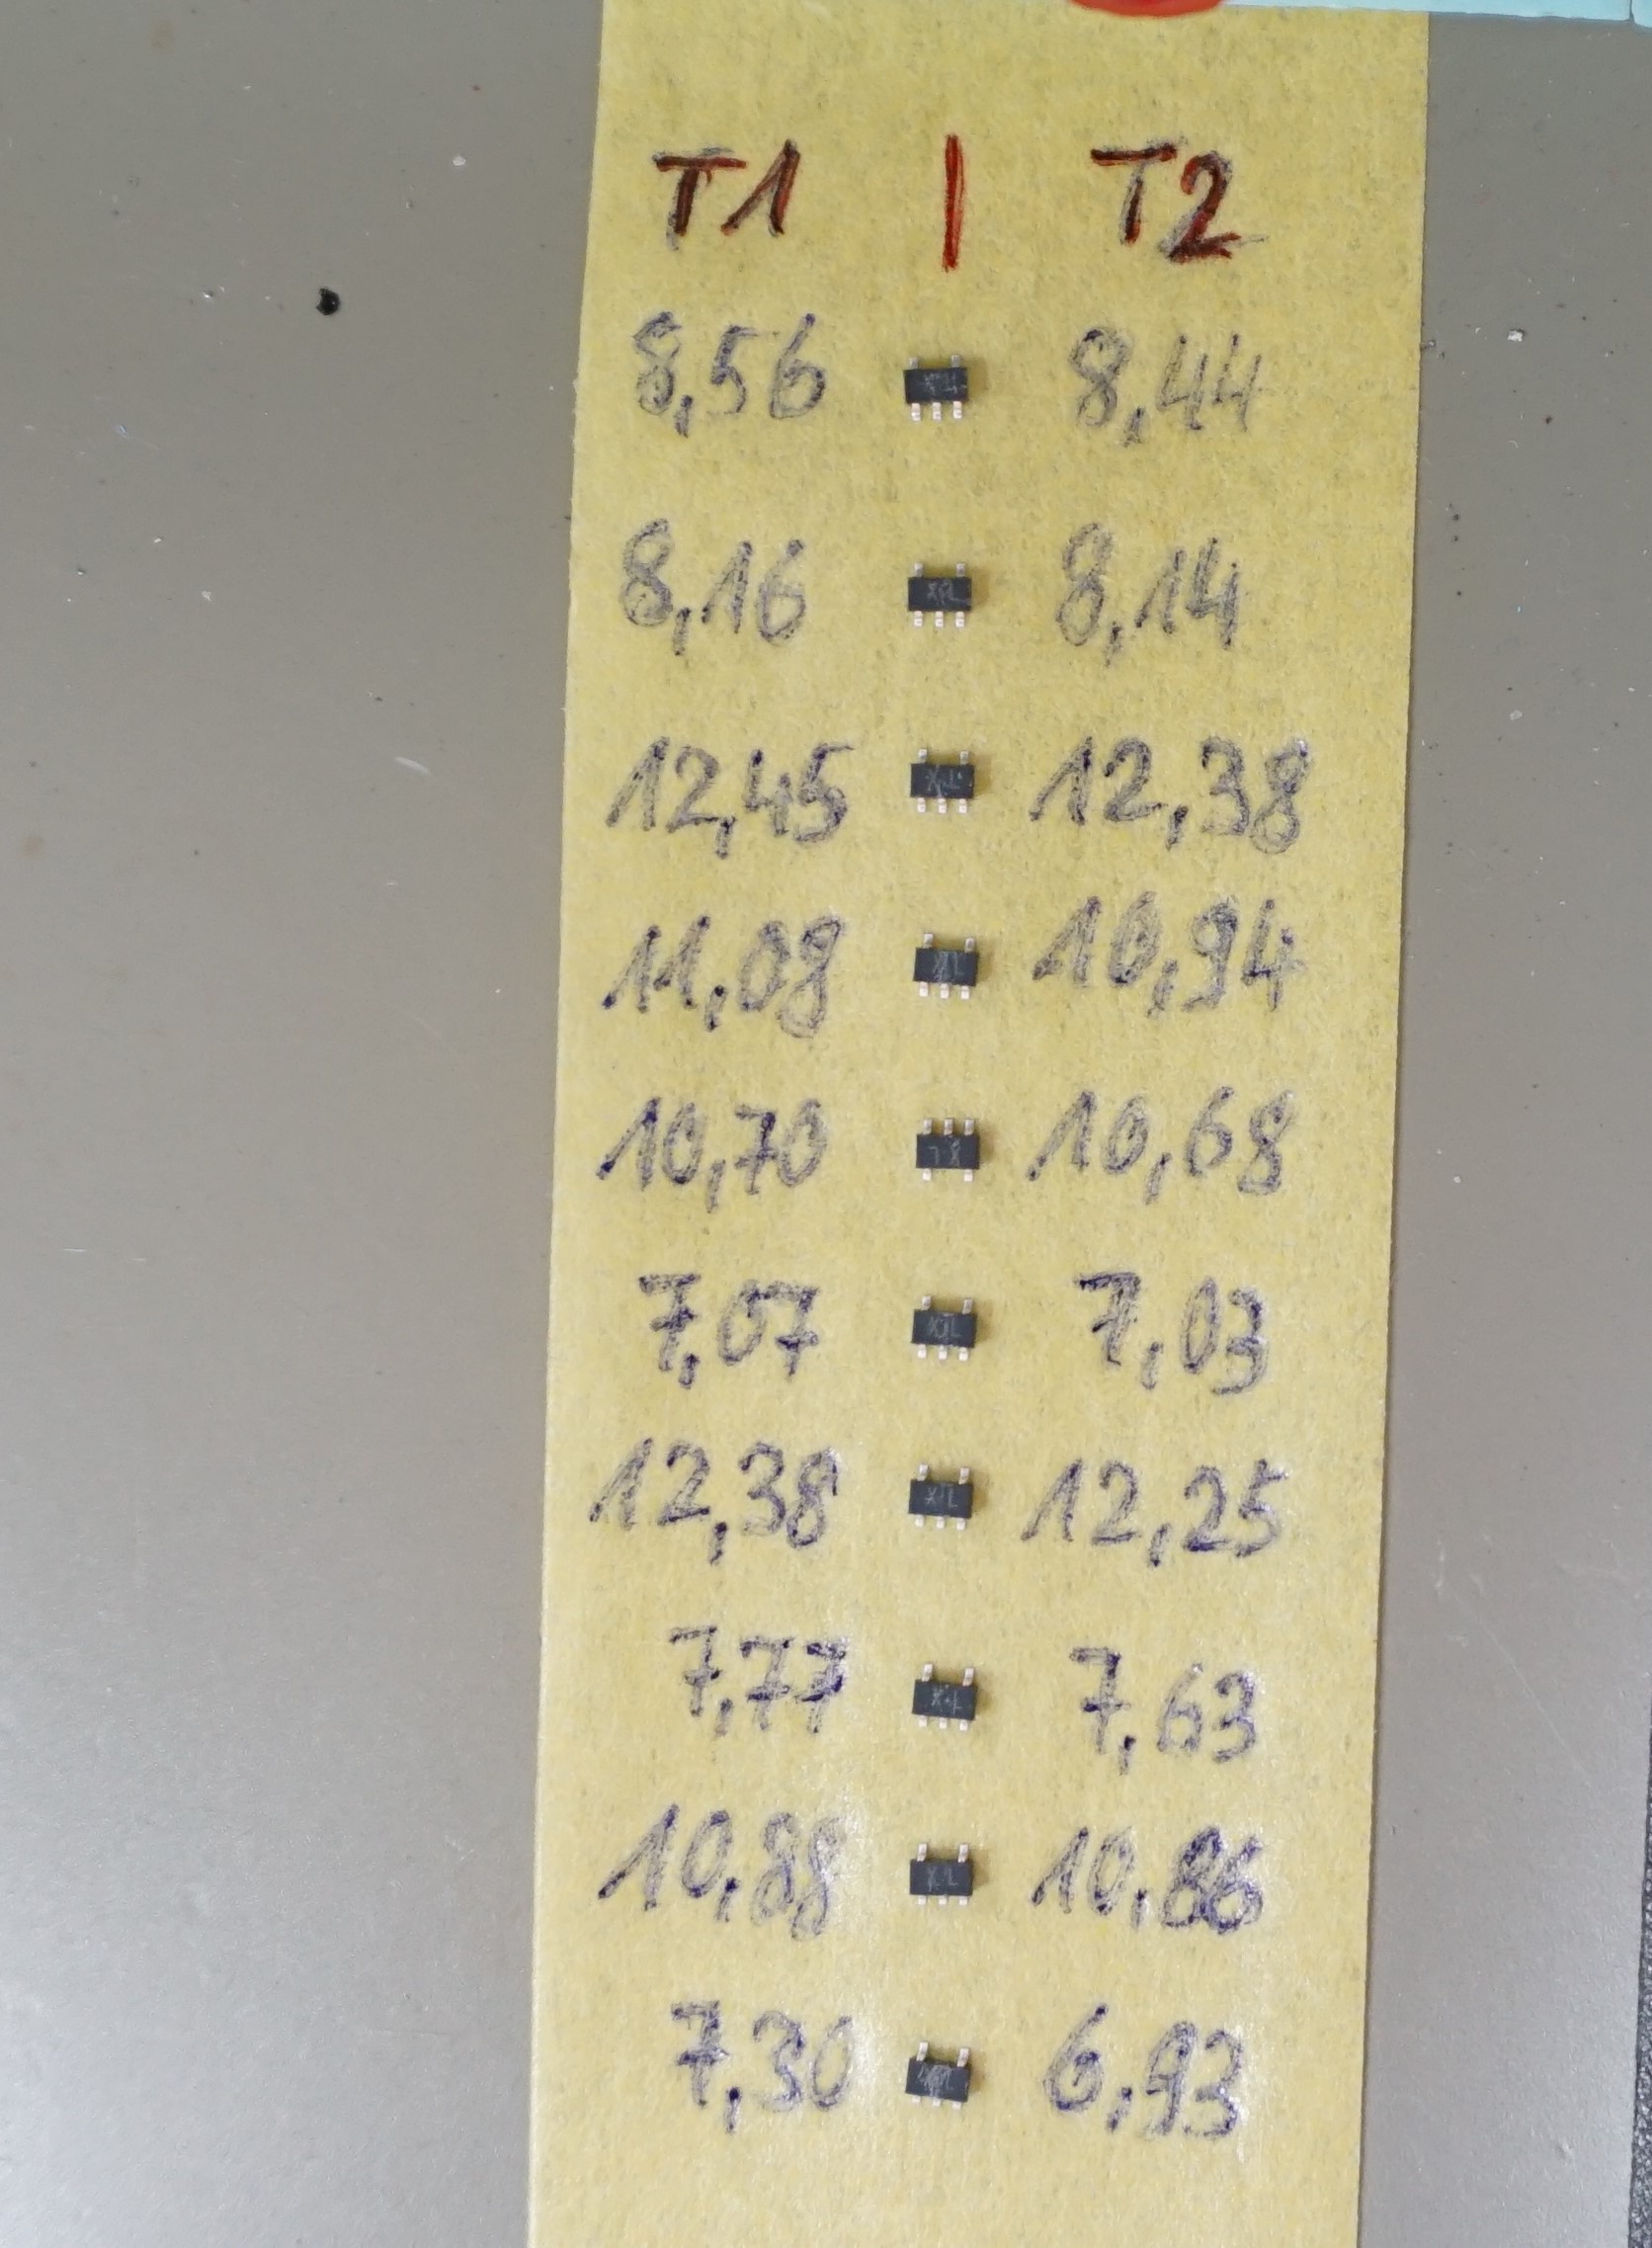 T1 | T2
8,56 8,44
8,16 8,14
12,45 12,38
11,08 10,94
10,70 10,68
7,07 7,03
12,38 12,25
7,77 7,63
10,88 10,86
7,30 6,93